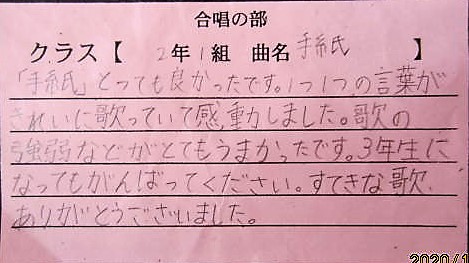 合唱の部
クラス【 2年1組 曲名 手紙 】
「手紙」とっても良かったです。1つ1つの言葉が
きれいに歌っていて感動しました。歌の
強弱などがとてもうまかったです。3年生に
なってもがんばってください。すてきな歌
ありがとうございました。